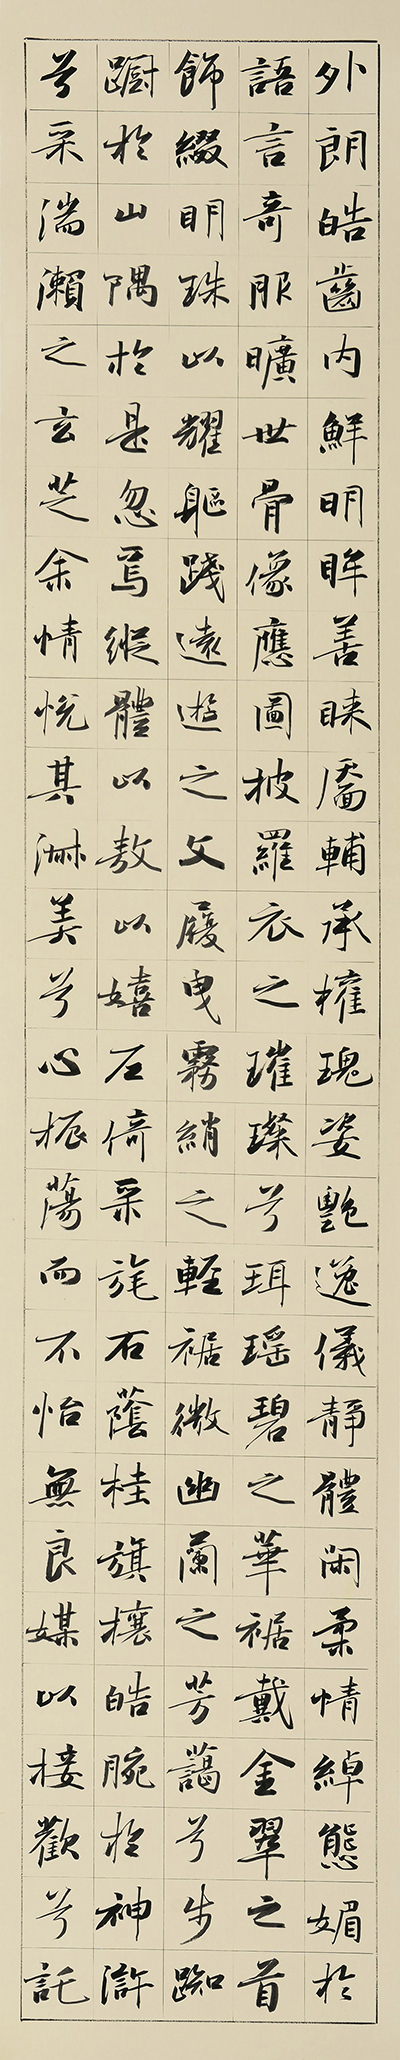 外朗皓齒內鮮明眸善睞靨輔承權瑰姿艷逸儀靜體閑柔情綽態媚於
語言奇服曠世骨像應圖披羅衣之璀璨兮珥瑤碧之華裾戴金翠之首
飾綴明珠以耀軀踐遠遊之文履曳霧綃之輕裾微幽蘭之芳藹兮步踟
躕於山隅於是忽焉縱體以敖以嬉左倚采旄右蔭桂旗攘皓腕於神滸
兮采湍瀨之玄芝余情悅其淋美兮心振蕩而不怡無良媒以接歡兮託